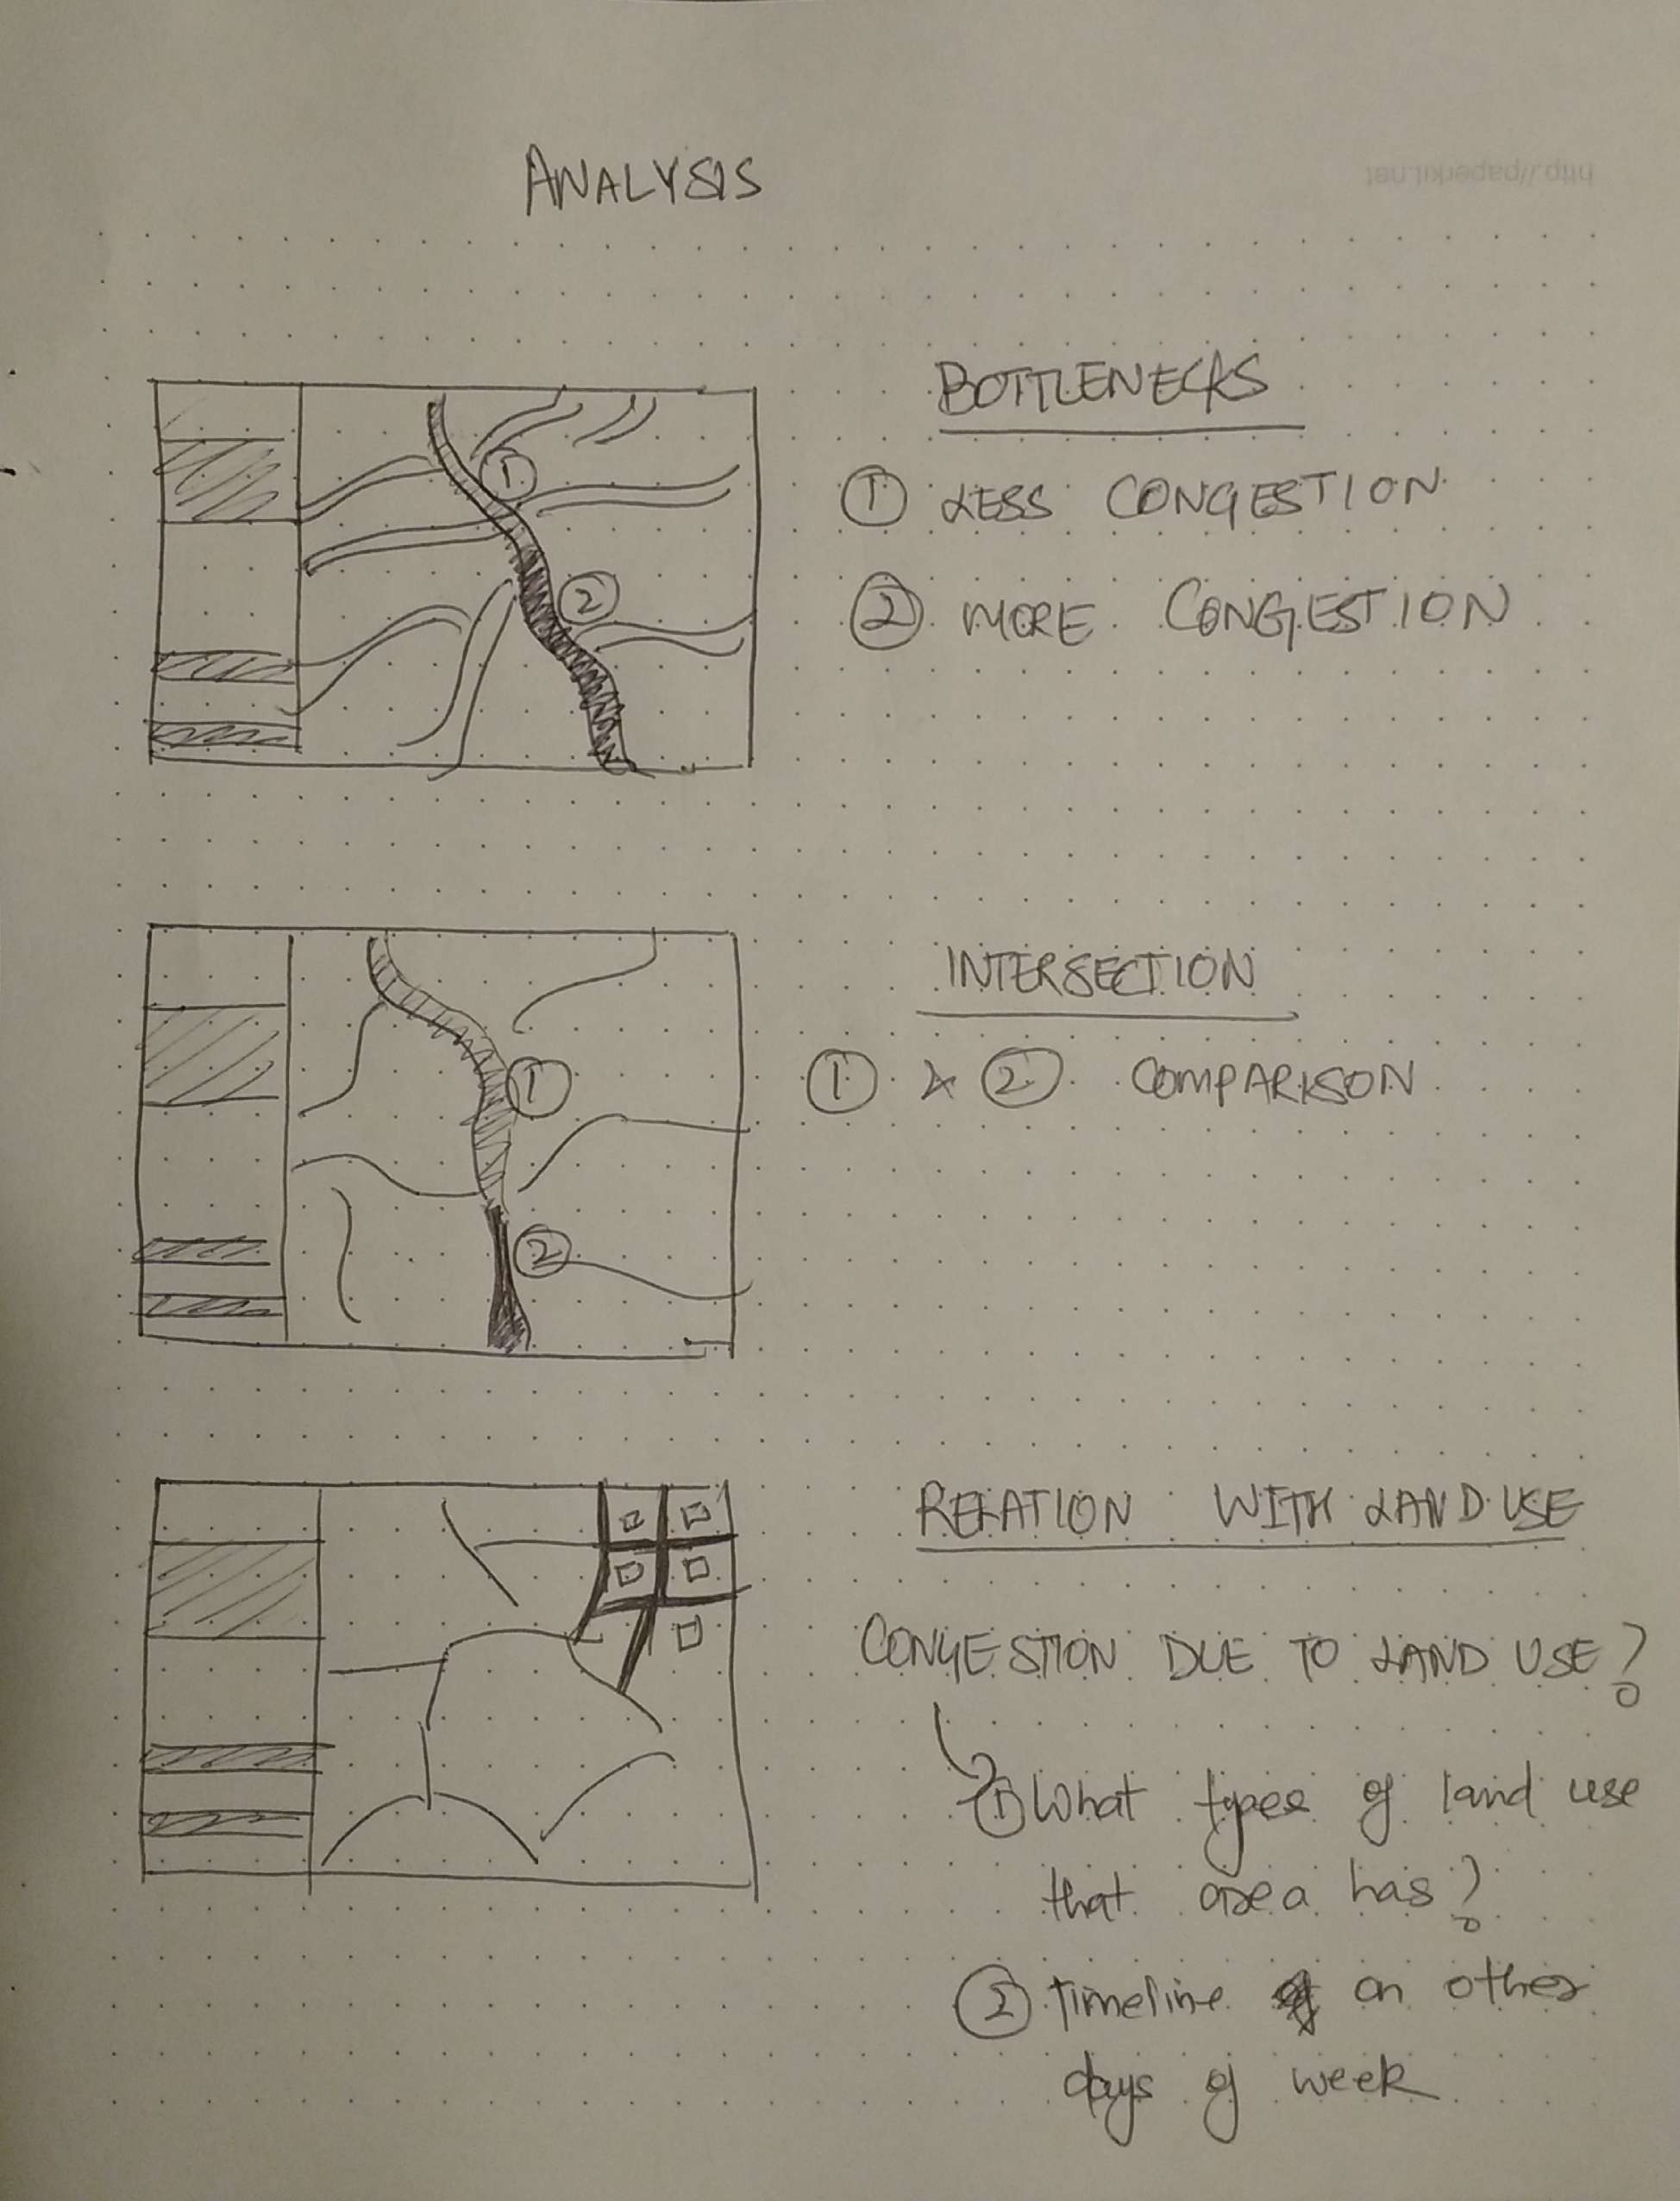 ANALYSIS
http://paperkit.net
BOTTLENECKS
① LESS CONGESTION
② MORE CONGESTION
1
2
INTERSECTION
① & ② COMPARISON
1
2
RELATION WITH LAND USE
CONGESTION DUE TO LAND USE?
① What types of land use
that area has?
② Timeline on other
days of week